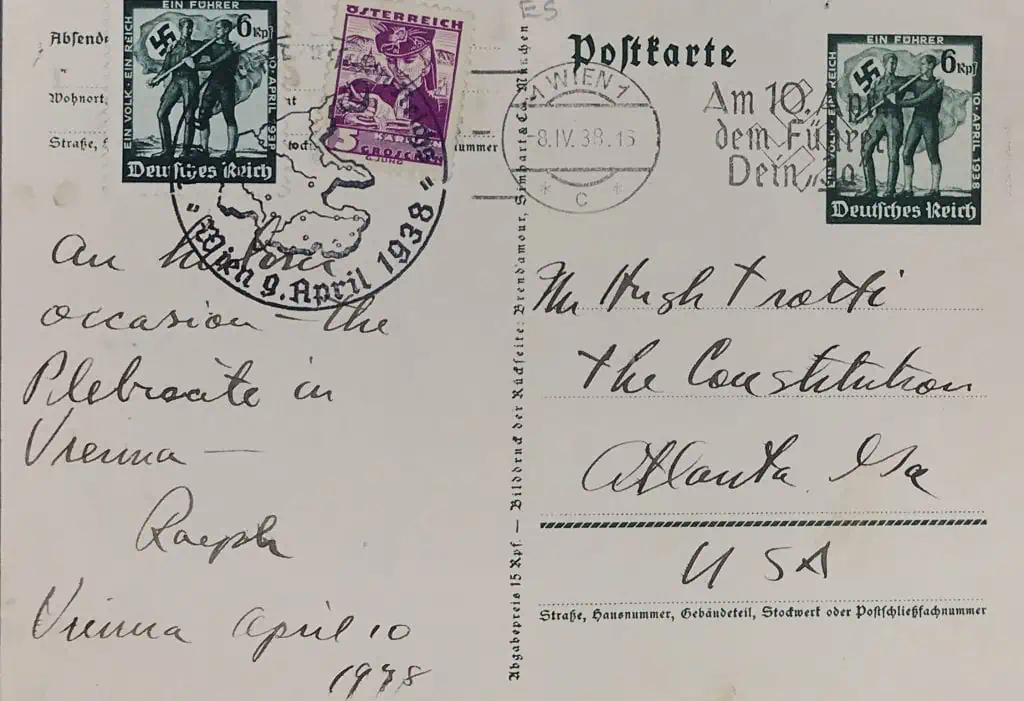 EIN FÜHRER
EIN VOLK · EIN REICH
6 Rpf
10·APRIL 1938
Deutsches Reich
ÖSTERREICH
5
KÄRNTEN
GROSCHEN
Wohnort,
Straße,
nummer
"Wien 9. April 1938"
An historic
occasion – the
Plebiscite in
Vienna —
Ralph
Vienna April 10
1938
Abgabepreis 15 Rpf. — Bilddruck der Rückseite: Brend'amour, Simhart & Co., München
ES
Postkarte
WIEN 1
8.IV.38.16
* C *
Am 10. April
dem Führer
Dein „Ja
EIN FÜHRER
EIN VOLK · EIN REICH
6 Rpf
10·APRIL 1938
Deutsches Reich
Mr Hugh Trotti
The Constitution
Atlanta Ga
USA
Straße, Hausnummer, Gebäudeteil, Stockwerk oder Postschließfachnummer